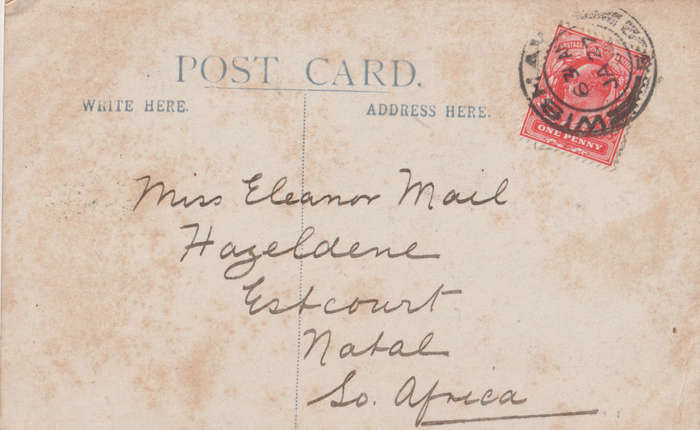 POST CARD.
WRITE HERE.
ADDRESS HERE.
ONE PENNY
Miss Eleanor Mail
Hazeldene
Estcourt
Natal
So. Africa